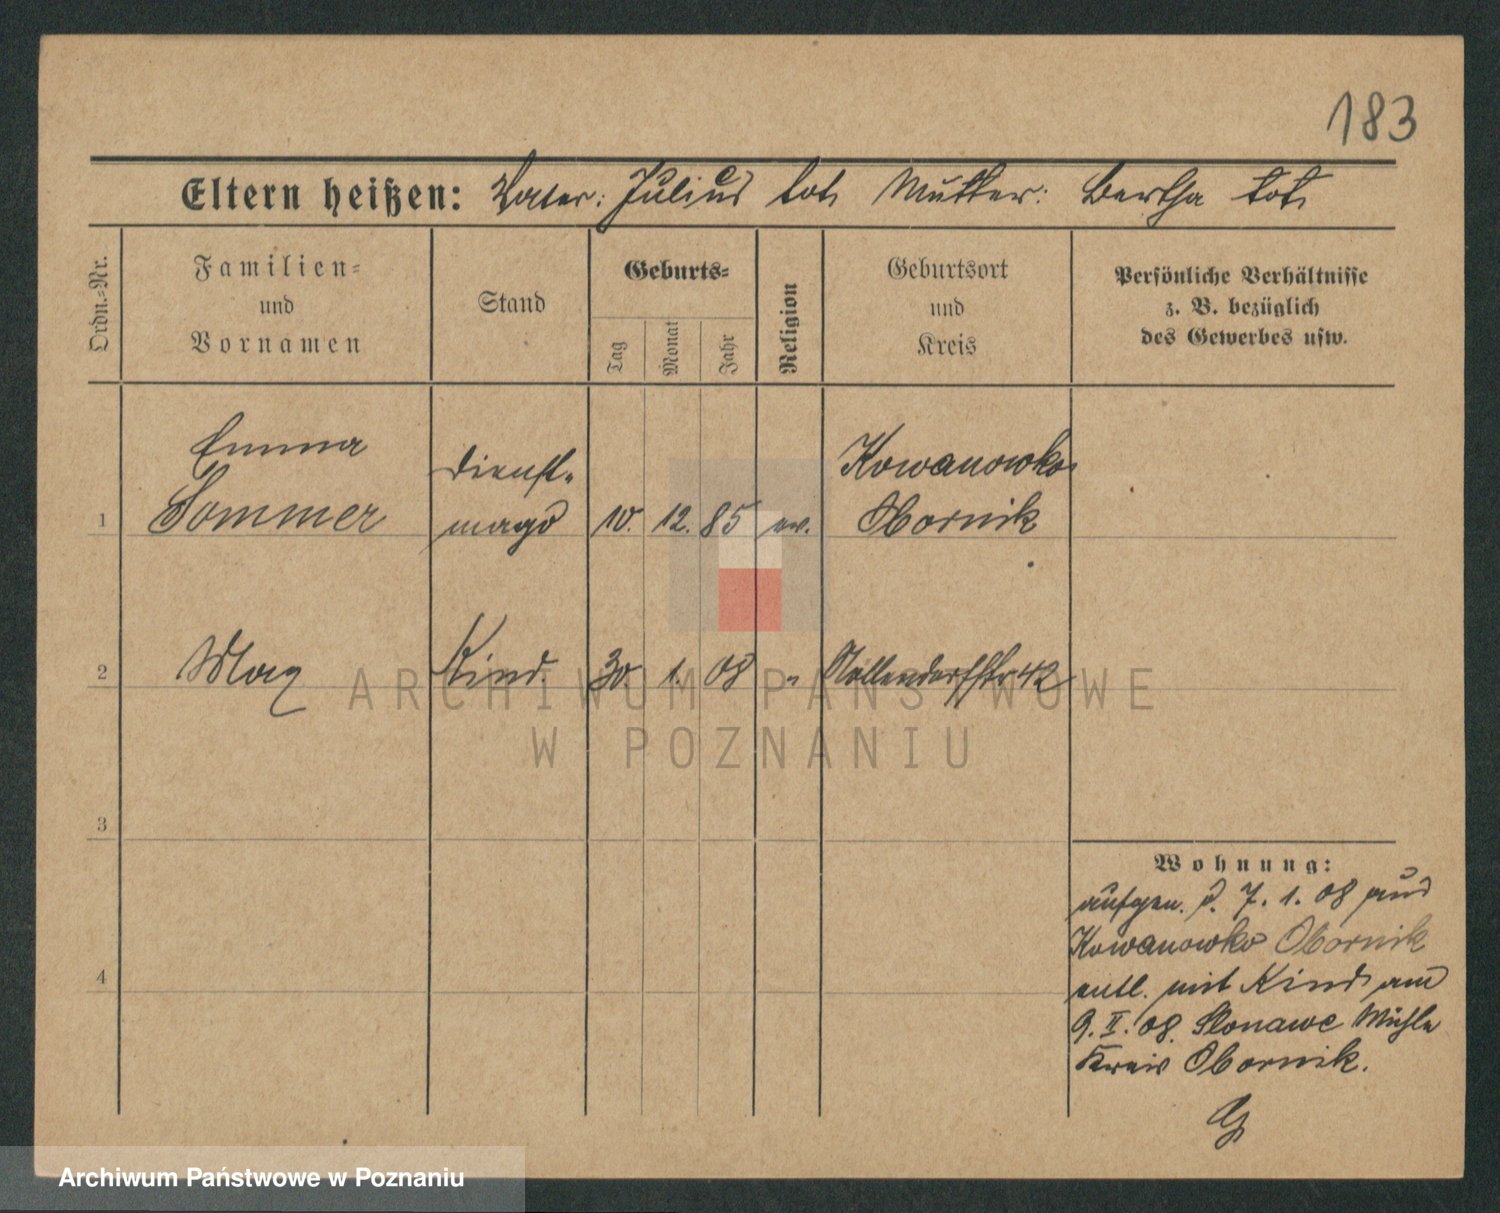 183
Eltern heißen: Vater: Julius tot, Mutter: Bertha tot,
Ordn.=Nr.
Familien=
und
Vornamen
Stand
Geburts=
Tag
Monat
Jahr
Religion
Geburtsort
und
Kreis
Persönliche Verhältnisse
z. B. bezüglich
des Gewerbes usw.
1
Emma
Sommer
Dienst-
magd
10. 12. 85 ev.
Kowanowko
Obornik
2
Max
Kind. 30 1. 08 " Nollendorfstr 42
ARCHIWUM PAŃSTWOWE
W POZNANIU
3
4
Wohnung:
aufgen. d. 7. 1. 08 aus
Kowanowko Obornik
entl. mit Kind am
9. II. 08. Slonawe Mühle
Kreis Obornik.
Archiwum Państwowe w Poznaniu